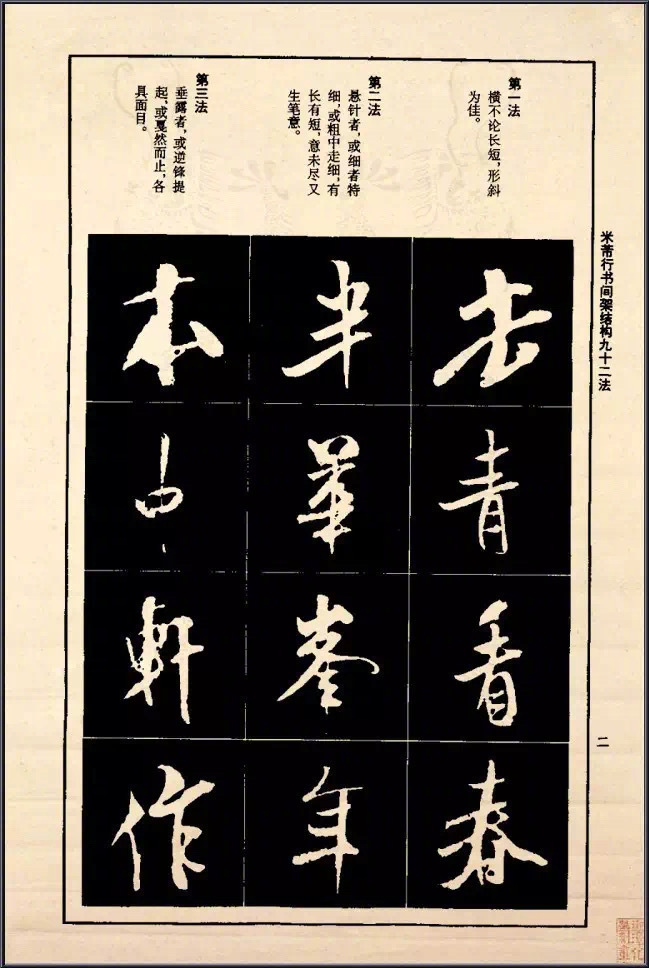 米芾行书间架结构九十二法
二
第一法
横不论长短，形斜
为佳。
去
青
看
春
第二法
悬针者，或细者特
细，或粗中走细，有
长有短，意未尽又
生笔意。
半
華
峯
年
第三法
垂露者，或逆锋提
起，或戛然而止，各
具面目。
本
中
軒
作